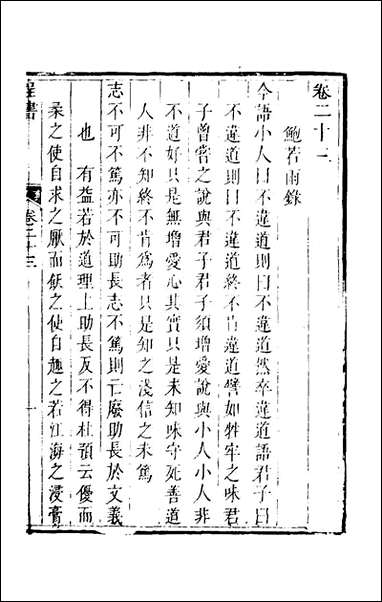 卷二十二
鮑若雨錄
今語小人曰不違道則曰不違道然卒違道語君子曰
不違道則曰不違道終不肯違道譬如牲牢之味君
子曾嘗之說與君子君子須增愛說與小人小人非
不道好只是無增愛心其實只是未知味守死善道
人非不知終不肯爲者只是知之淺信之未篤
志不可不篤亦不可助長志不篤則亡廢助長於文義
也 有益若於道理上助長反不得杜預云優而
柔之使自求之厭而飫之使自趣之若江海之浸膏
程書
卷二十三
一